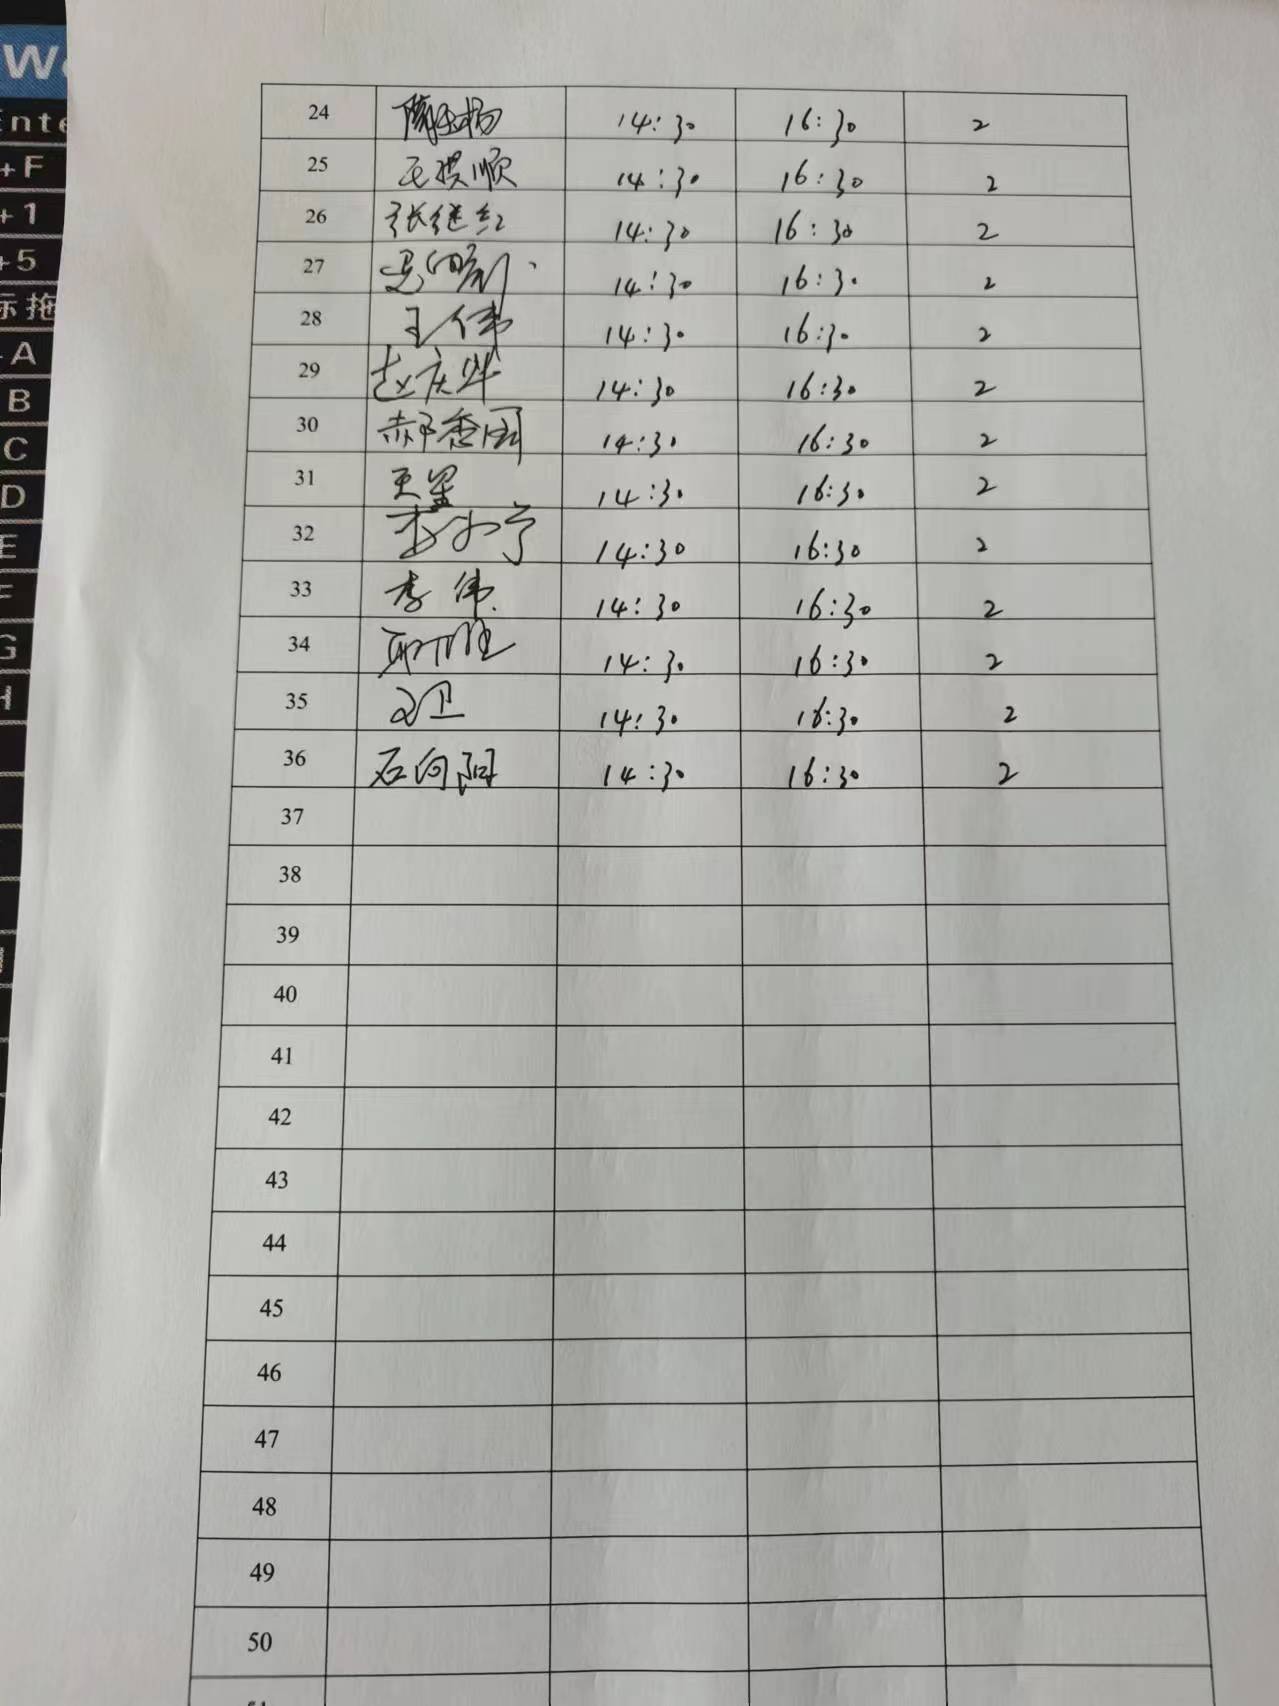 W
Ente
+F
+1
+5
标拖
A
B
C
D
E
F
G
H
24 14:30 16:30 2
25 14:30 16:30 2
26 张继红 14:30 16:30 2
27 14:30 16:30 2
28 王伟 14:30 16:30 2
29 赵庆 14:30 16:30 2
30 郝香国 14:30 16:30 2
31 王星 14:30 16:30 2
32 14:30 16:30 2
33 李伟 14:30 16:30 2
34 14:30 16:30 2
35 卫 14:30 16:30 2
36 石向阳 14:30 16:30 2
37
38
39
40
41
42
43
44
45
46
47
48
49
50
51